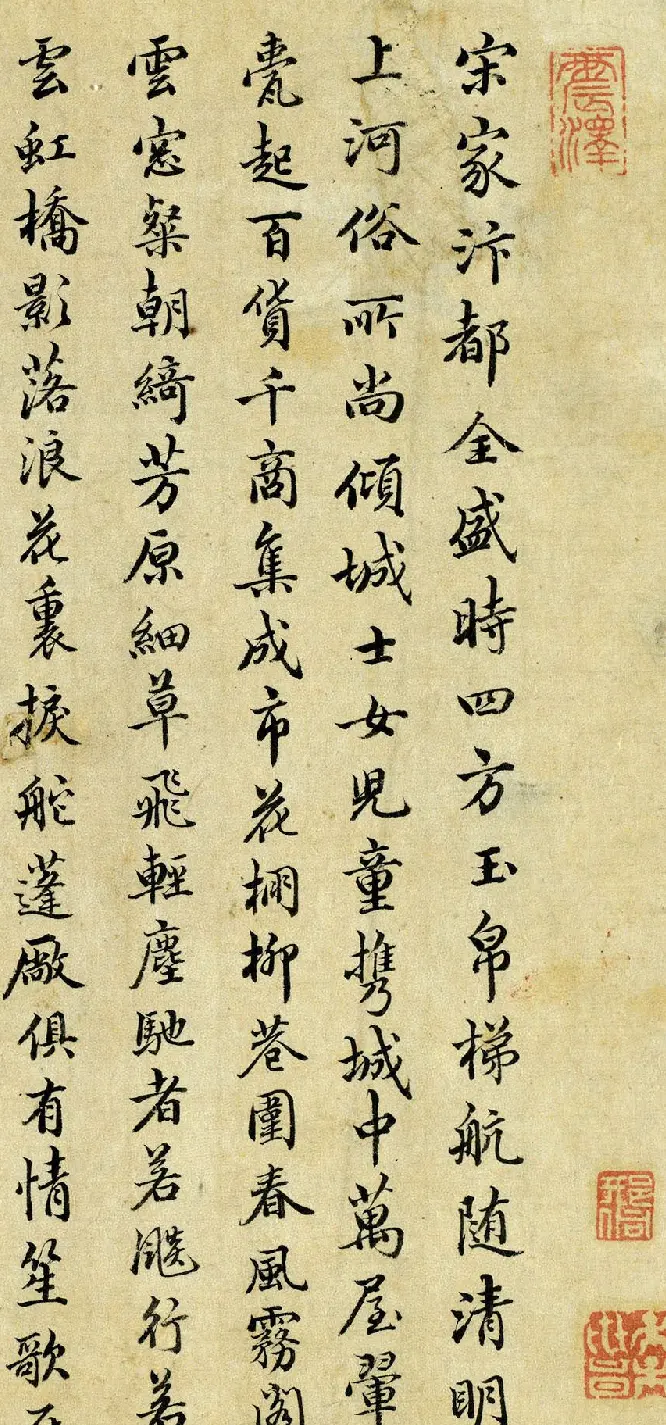 震澤
宋家汴都全盛時四方玉帛梯航随清明
上河俗所尚傾城士女児童携城中萬屋翬
甍起百貨千商集成市花棚柳巷圍春風霧閣
雲窓粲朝綺芳原細草飛輕塵馳者若飈行若
雲虹橋影落浪花裏捩舵蓬厰俱有情笙歌